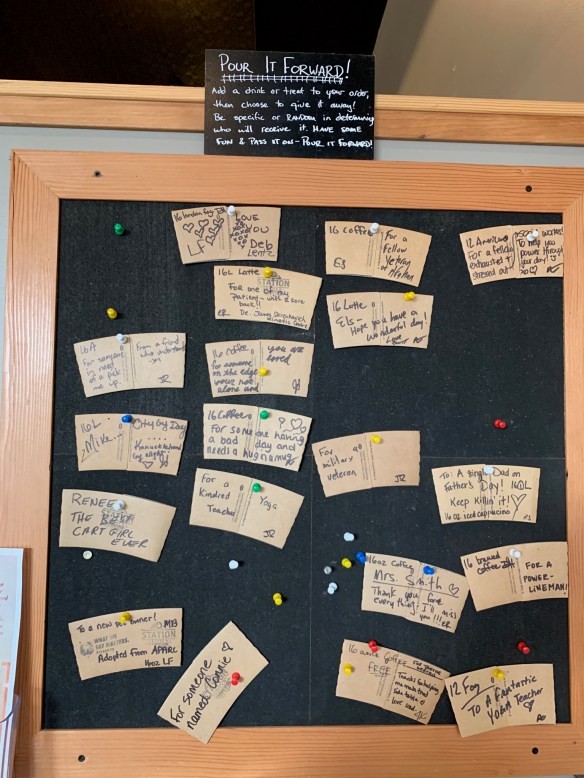 POUR IT FORWARD!
Add a drink or treat to your order,
then choose to give it away!
Be specific or RANDOM in determining
who will receive it. HAVE SOME
FUN & PASS IT ON - POUR IT FORWARD!
16 London Fog
LF
LOVE
YOU
Deb
Lentz
16 COFFEE
For a
Fellow
Veteran
12 Americano
For a fellow
exhausted &
stressed out
To help you
power through
your day!
16L Latte
STATION
FOR one of my
patient - with a sore
back!!
Dr. James
16 Latte
Els -
Hope you have a
wonderful day!
Love
16A
For someone
in need
of a pick
me up.
From a friend
who understands
JR
16 coffee
for someone
on the edge
you're not
alone and
you are
loved
16L
Mike...
City by Day
by night!
16 Coffee
For someone having
a bad day and
need a hug n a mug
For a
military
veteran
JR
To: A Single Dad on
Father's Day! 16OL
Keep Killin' it!
16 oz iced cappucino
For a
Kindred
Teacher
Yoga
JR
RENEE
THE BEST
CART GIRL
EVER
16oz Coffee
Mrs. Smith
Thank you for
everything; I'll miss
you!!! EK
16 brewed
coffee
FOR A
POWER-
LINEMAN!
To a new owner!
MB
STATION
Adopted from APARL
LF
For someone
named Connie
16 ounce Coffee
FREE
Thanks for helping
me
12 Fog
TO A FANTASTIC
YOGA TEACHER